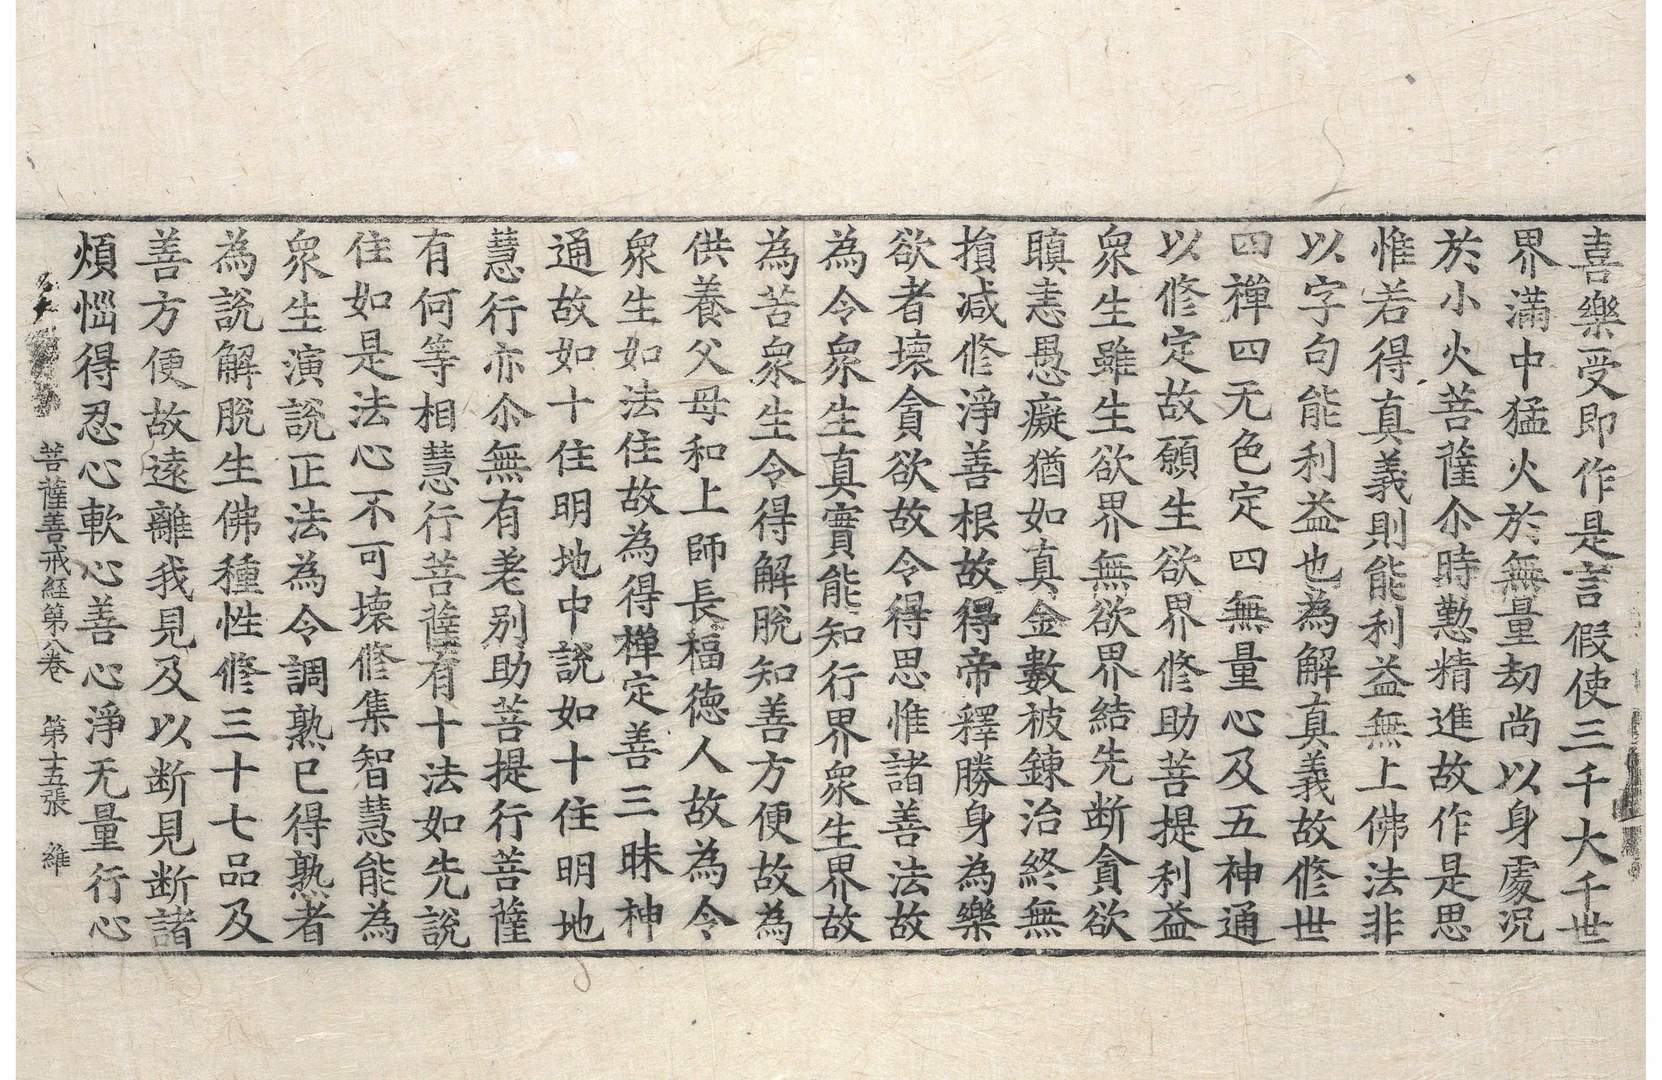 喜樂受即作是言假使三千大千世
界滿中猛火於無量劫尚以身處况
於小火菩薩尒時懃精進故作是思
惟若得真義則能利益無上佛法非
以字句能利益也為解真義故修世
四禪四无色定四無量心及五神通
以修定故願生欲界修助菩提利益
衆生雖生欲界無欲界結先断貪欲
瞋恚愚癡猶如真金數被鍊治終無
損减修淨善根故得帝釋勝身為樂
欲者壞貪欲故令得思惟諸善法故
為令衆生真實能知行界衆生界故
為苦衆生令得解脫知善方便故為
供養父母和上師長福徳人故為令
衆生如法住故為得禪定善三昧神
通故如十住明地中說如十住明地
慧行亦尒無有差别助菩提行菩薩
有何等相慧行菩薩有十法如先說
住如是法心不可壞修集智慧能為
衆生演說正法為令調熟已得熟者
為說解脫生佛種性修三十七品及
善方便故遠離我見及以断見断諸
煩惱得忍心軟心善心淨无量行心
菩薩善戒経第八卷 第十五張 維